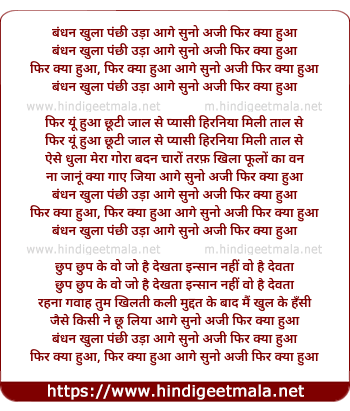 बंधन खुला पंछी उड़ा आगे सुनो अजी फिर क्या हुआ
बंधन खुला पंछी उड़ा आगे सुनो अजी फिर क्या हुआ
फिर क्या हुआ, फिर क्या हुआ आगे सुनो अजी फिर क्या हुआ
बंधन खुला पंछी उड़ा आगे सुनो अजी फिर क्या हुआ
www.hindigeetmala.net m.hindigeetmala.net
फिर यूं हुआ छूटी जाल से प्यासी हिरनिया मिली ताल से
फिर यूं हुआ छूटी जाल से प्यासी हिरनिया मिली ताल से
ऐसे धुला मेरा गोरा बदन चारों तरफ़ खिला फूलों का वन
ना जानूं क्या गाए जिया आगे सुनो अजी फिर क्या हुआ
बंधन खुला पंछी उड़ा आगे सुनो अजी फिर क्या हुआ
फिर क्या हुआ, फिर क्या हुआ आगे सुनो अजी फिर क्या हुआ
बंधन खुला पंछी उड़ा आगे सुनो अजी फिर क्या हुआ
www.hindigeetmala.net m.hindigeetmala.net
छुप छुप के वो जो है देखता इन्सान नहीं वो है देवता
छुप छुप के वो जो है देखता इन्सान नहीं वो है देवता
रहना गवाह तुम खिलती कली मुद्दत के बाद मैं खुल के हँसी
जैसे किसी ने छू लिया आगे सुनो अजी फिर क्या हुआ
बंधन खुला पंछी उड़ा आगे सुनो अजी फिर क्या हुआ
फिर क्या हुआ, फिर क्या हुआ आगे सुनो अजी फिर क्या हुआ
https://www.hindigeetmala.net